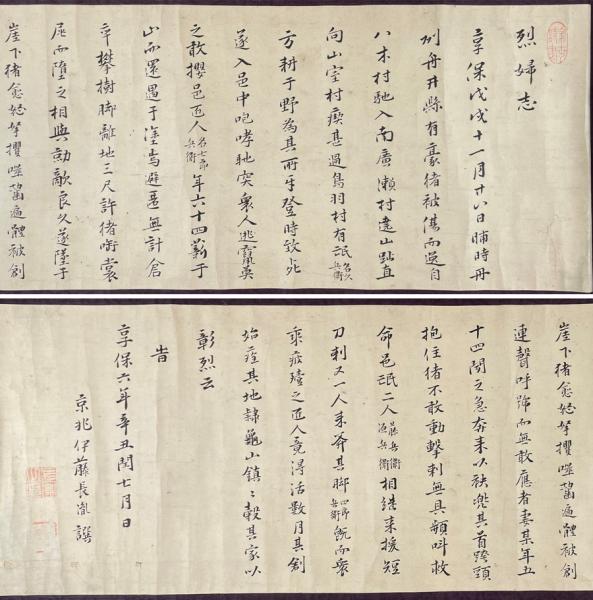 烈婦志
享保戊戌十一月廿八日晡時丹
州舟井縣有豪猪被傷而逸自
八木村馳入南廣瀬村遶山趾直
向山室村瘈甚過鳥羽村有氓名久兵衛
方耕于野為其所牙登時致死
遂入邑中咆哮馳突衆人逃竄莫
之敢攖邑匠人名七郎兵衛年六十四薪于
山而還遇于塗避匿無計倉
卒攀樹脚離地三尺許猪嚙裳
尾而墮之相與勍敵良久遂墜于
崖下猪愈怒拏攫噬齧遍體被創
崖下猪愈怒拏攫噬齧遍體被創
連聲呼號而無敢應者妻某年五
十四聞之急奔来以袂其首跨頸
抱住猪不敢動擊刺無具頻叫救
命邑氓二人藤兵衛漁兵衛相継来援短
刀刺又一人来斧其脚四郎兵衛而衆
乘疲殪之匠人竟得活数月其創
始痊其地隷龜山鎮〻穀其家以
彰烈云
旹
享保六年辛丑閏七月日
京兆伊藤長胤譔